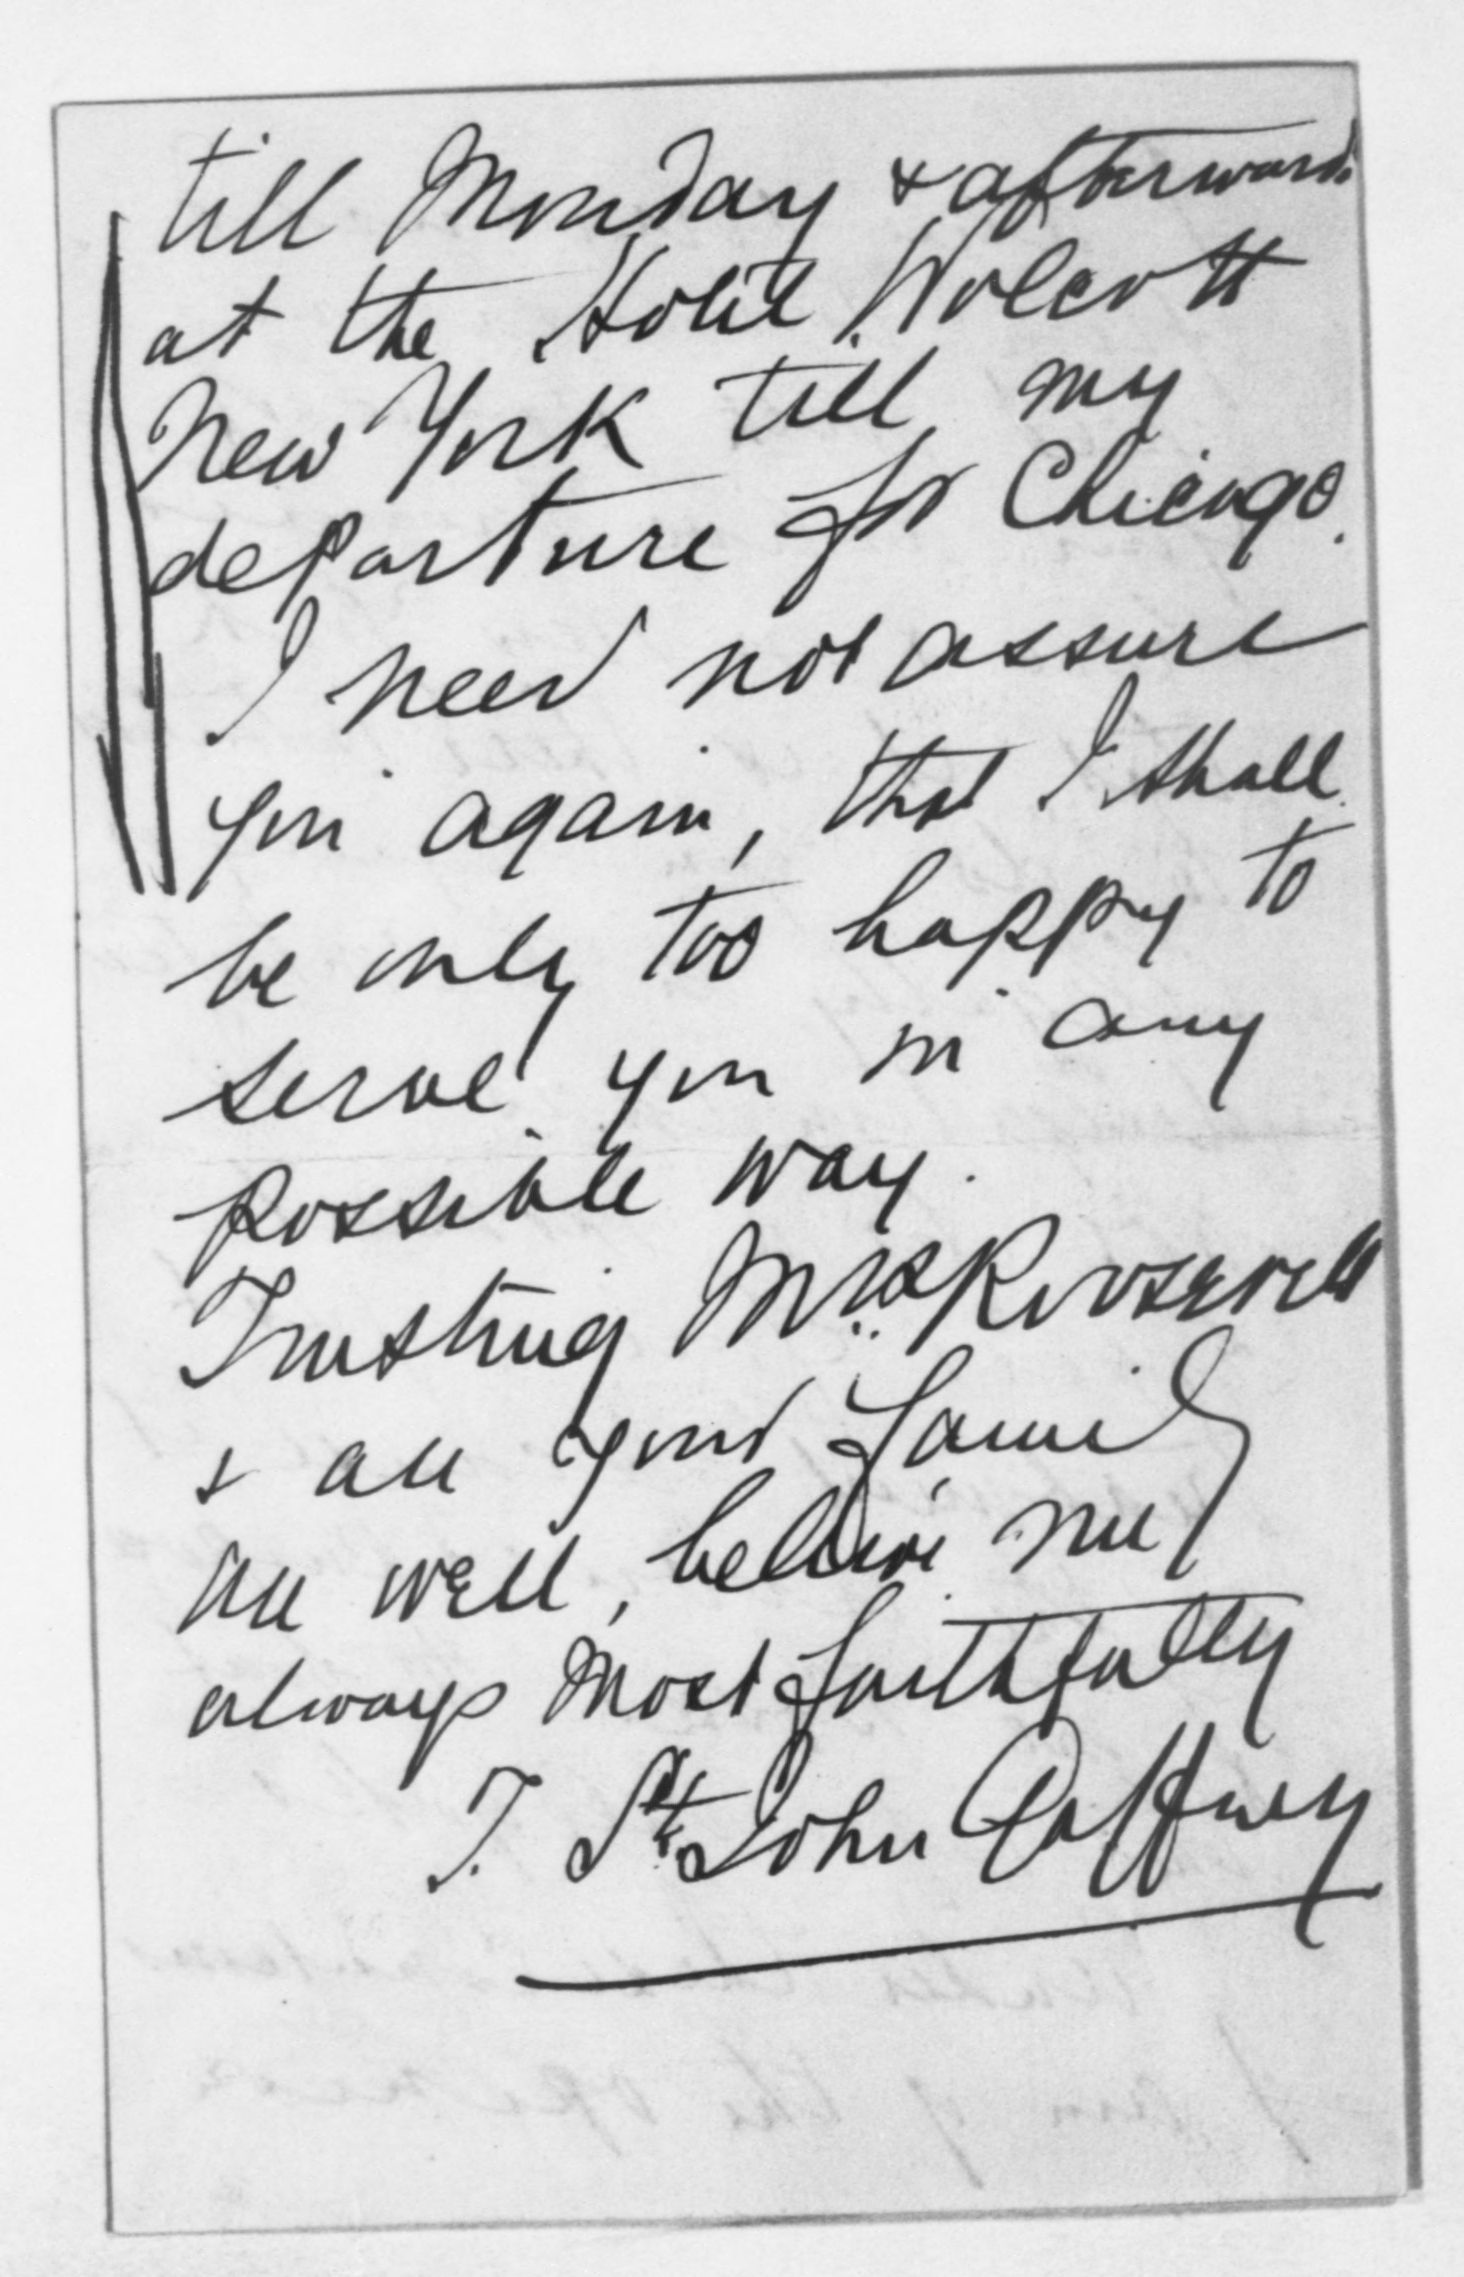 till Monday & afterwards
at the Hotel Wolcott
New York till my
departure for Chicago.
I need not assure
you again, that I shall
be only too happy to
serve you in any
possible way.
Trusting Mrs. Roosevelt
& all your family
are well, believe me
always most faithfully
T. St. John Gaffney